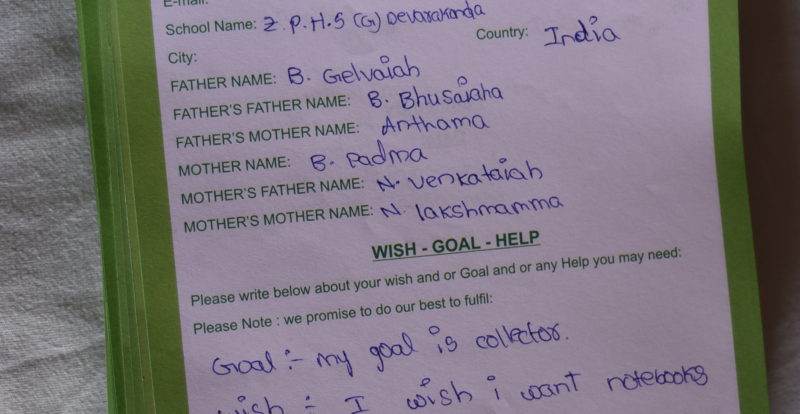 E-mail:
School Name: Z.P.H.S (G) Devarakonda
City: Country: India
FATHER NAME: B. Gelvaiah
FATHER'S FATHER NAME: B. Bhusaiaha
FATHER'S MOTHER NAME: Anthama
MOTHER NAME: B. Padma
MOTHER'S FATHER NAME: N. Venkataiah
MOTHER'S MOTHER NAME: N. lakshmamma
WISH - GOAL - HELP
Please write below about your wish and or Goal and or any Help you may need:
Please Note : we promise to do our best to fulfil:
Goal :- my goal is collector.
wish :- I wish i want notebooks